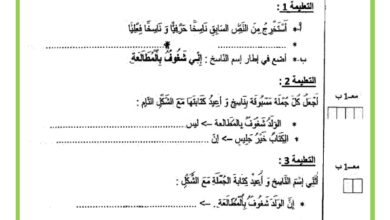 التعليمة 1 :
أ- أَسْتَخْرِجُ مِنَ النَّصِّ السَابِقِ نَاسِخًا حَرْفِيًّا وَ نَاسِخًا فِعْلِيًّا
ب- أضع في إطار إسم النّاسخ : إنِّي شَغُوفٌ بِالْمُطَالَعَةِ.
معـ1 ب
التعليمة 2 :
لَجْعَلُ كُلَّ جُمْلَةٍ مَسْبُوقَةً بِنَاسِخٍ وَ أُعِيدُ كِتَابَتَهَا مَعَ الشَّكْلِ التَّامِ :
الوَلَدُ شَغُوفٌ بِالْمُطالعة -> ليس
الكِتَابُ خَيْرُ جَلِيسٍ -> إنّ
معـ1 ب
التعليمة 3 :
أُثَنِّي إسْمَ النَّاسِخِ وَ أُعِيدُ كِتَابَةَ الجُمْلَةِ مَعَ الشَّكْلِ :
إنَّ الوَلَدَ شَغُوفٌ بِالْمُطَالَعَةِ.